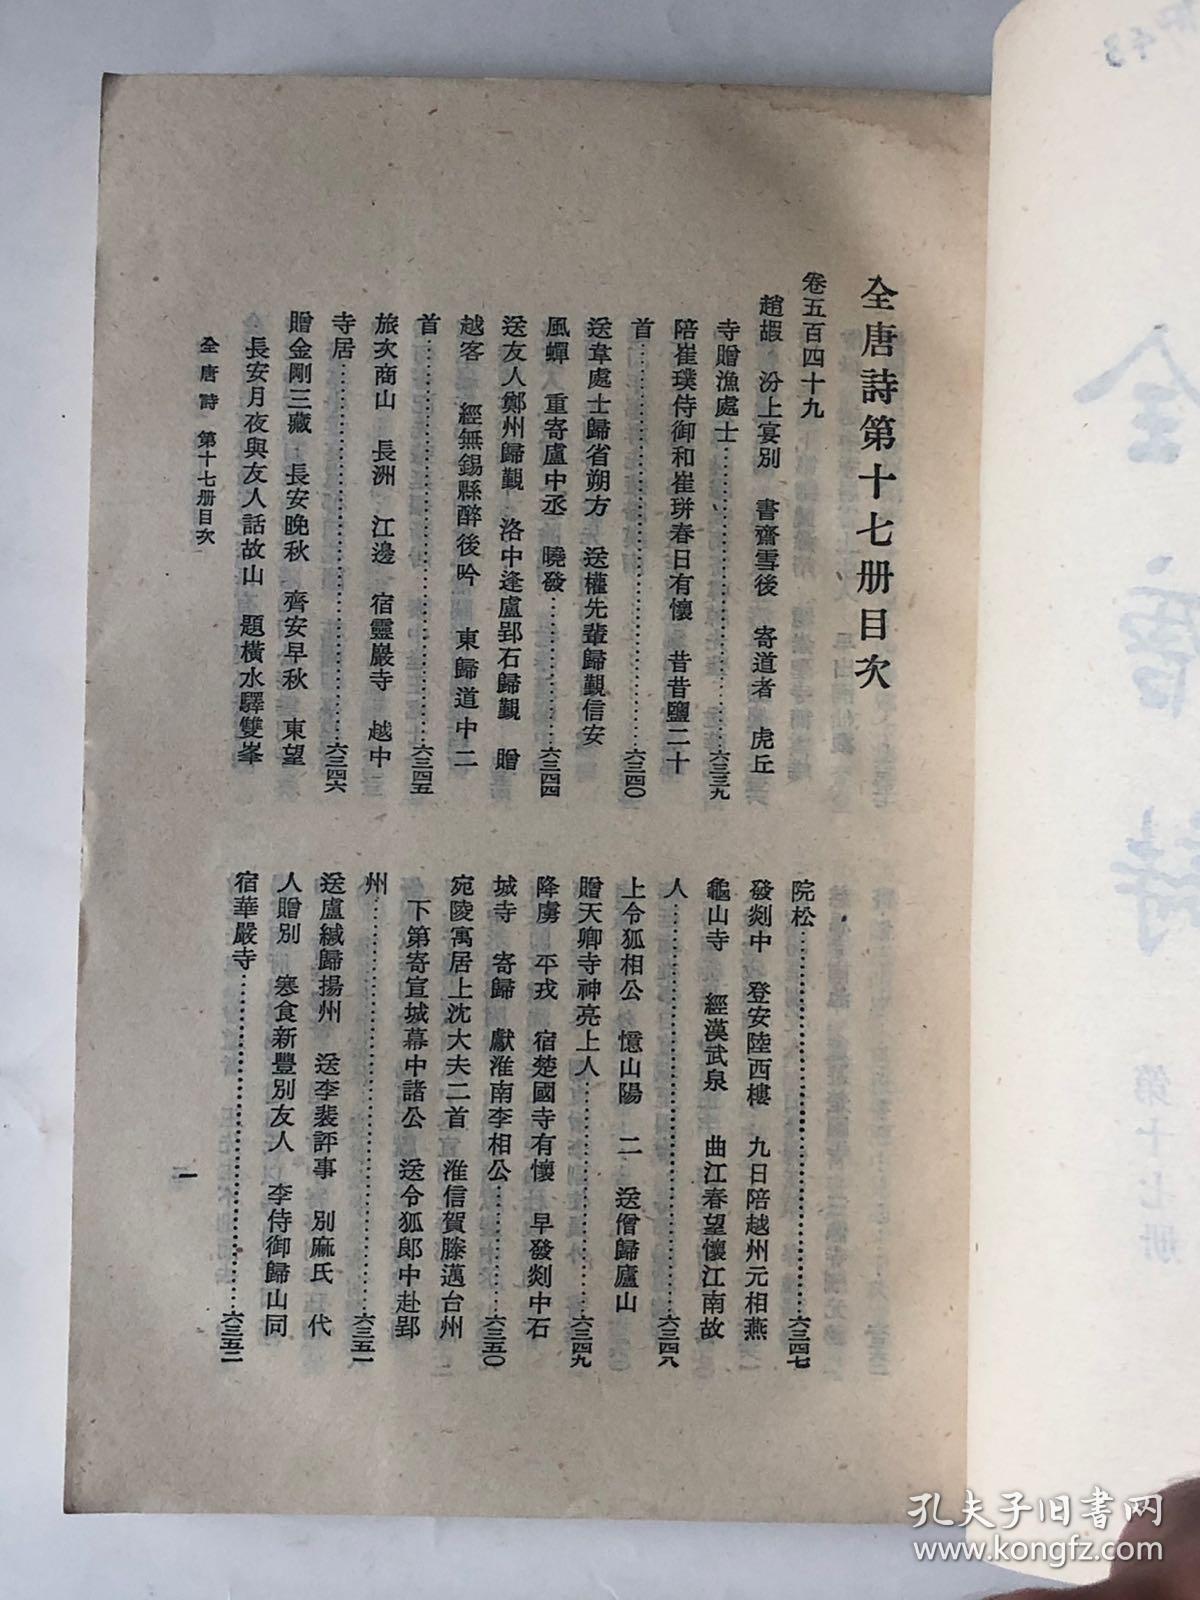 全唐詩第十七册目次
卷五百四十九
趙嘏 汾上宴別 書齋雪後 寄道者 虎丘
寺贈漁處士……六三三九
陪崔璞侍御和崔珙春日有懷 昔昔鹽二十
首……六三四〇
送韋處士歸省朔方 送權先輩歸覲信安
風蟬 重寄盧中丞 曉發……六三四四
送友人鄭州歸覲 洛中逢盧郢石歸覲 贈
越客 經無錫縣醉後吟 東歸道中二
首……六三四五
旅次商山 長洲 江邊 宿靈巖寺 越中
寺居……六三四六
贈金剛三藏 長安晚秋 齊安早秋 東望
長安月夜與友人話故山 題橫水驛雙峯
院松……六三四七
發剡中 登安陸西樓 九日陪越州元相燕
龜山寺 經漢武泉 曲江春望懷江南故
人……六三四八
上令狐相公 憶山陽 二 送僧歸廬山
贈天卿寺神亮上人……六三四九
降虜 平戎 宿楚國寺有懷 早發剡中石
城寺 寄歸 獻淮南李相公……六三五〇
宛陵寓居上沈大夫二首 淮信賀滕邁台州
下第寄宣城幕中諸公 送令狐郎中赴郢
州……六三五一
送盧緘歸揚州 送李裴評事 別麻氏 代
人贈別 寒食新豐別友人 李侍御歸山同
宿華嚴寺……六三五二
全唐詩 第十七册目次
一
全唐詩
第十七册
孔夫子旧书网
www.kongfz.com